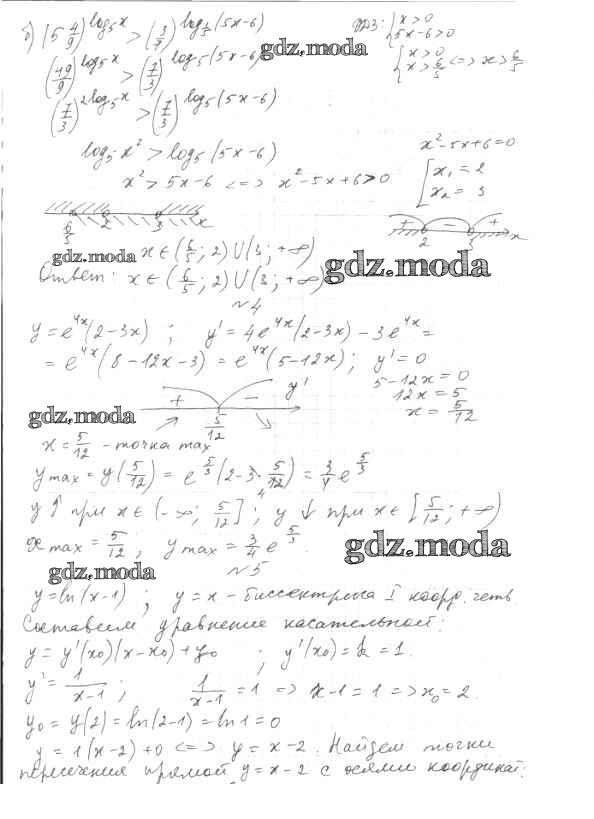 б) (5 4/9)^{log_5 x} > (3/7)^{log_{1/5}(5x-6)} ОДЗ: { x > 0
5x-6 > 0
gdz.moda
(49/9)^{log_5 x} > (7/3)^{log_5(5x-6)} { x > 0
x > 6/5 <=> x > 6/5
(7/3)^{2log_5 x} > (7/3)^{log_5(5x-6)}
log_5 x² > log_5(5x-6) x²-5x+6=0
x² > 5x-6 <=> x²-5x+6>0 [ x₁ = 2
x₂ = 3
6/5 2 3 x + - + 2 3 x
gdz.moda x ∈ (6/5; 2) U (3; +∞)
gdz.moda
Ответ: x ∈ (6/5; 2) U (3; +∞)
№4
y = e^{4x}(2-3x) ; y' = 4e^{4x}(2-3x) - 3e^{4x} =
= e^{4x}(8-12x-3) = e^{4x}(5-12x) ; y' = 0
5-12x = 0
12x = 5
x = 5/12
+ - y'
5/12
gdz.moda
x = 5/12 - точка max
y max = y(5/12) = e^{5/3}(2-3·5/12) = 3/4 e^{5/3}
y ↑ при x ∈ (-∞; 5/12] ; y ↓ при x ∈ [5/12; +∞)
x max = 5/12 ; y max = 3/4 e^{5/3}.
gdz.moda
gdz.moda
№5
y = ln(x-1) ; y = x - биссектриса I коорд. четв
Составим уравнение касательной:
y = y'(x₀)(x-x₀) + y₀ ; y'(x₀) = k = 1.
y' = 1/(x-1) ; 1/(x-1) = 1 => x-1 = 1 => x₀ = 2.
y₀ = y(2) = ln(2-1) = ln1 = 0
y = 1(x-2)+0 <=> y = x-2. Найдем точки
пересечения прямой y = x-2 с осями координат: